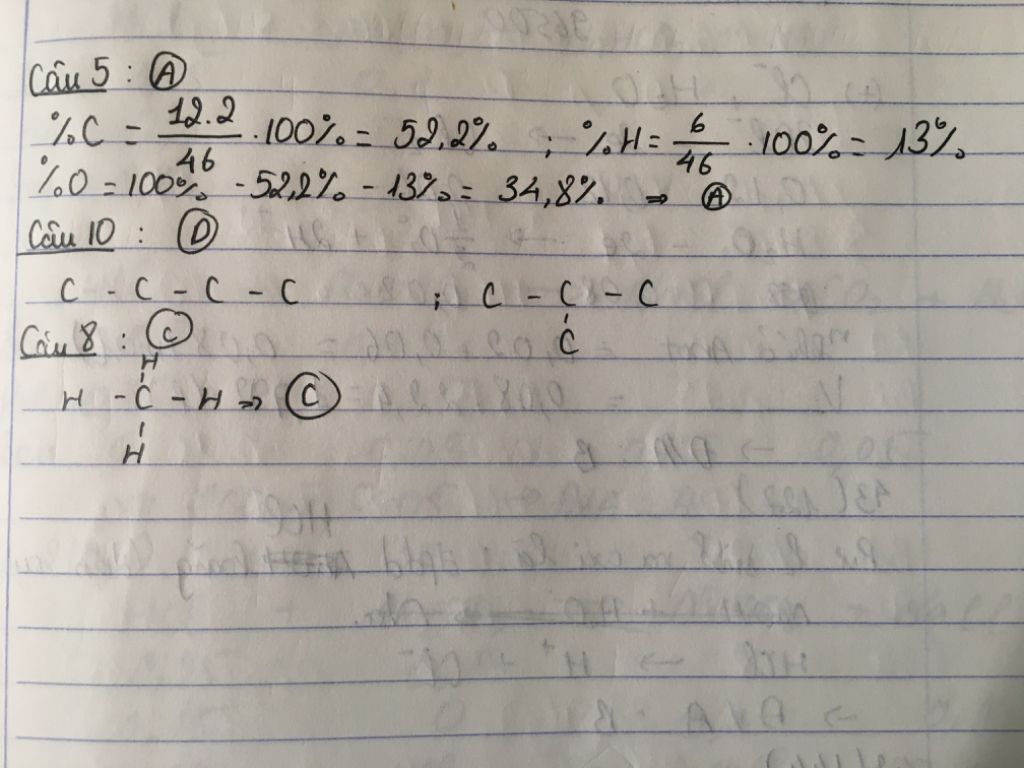 Câu 5 : A
%C = 12.2/46 . 100% = 52,2% ; %H = 6/46 . 100% = 13%
%O = 100% - 52,2% - 13% = 34,8% ⇒ A
Câu 10 : D
C - C - C - C ; C - C - C
C
Câu 8 : C
H
H - C - H ⇒ C
H